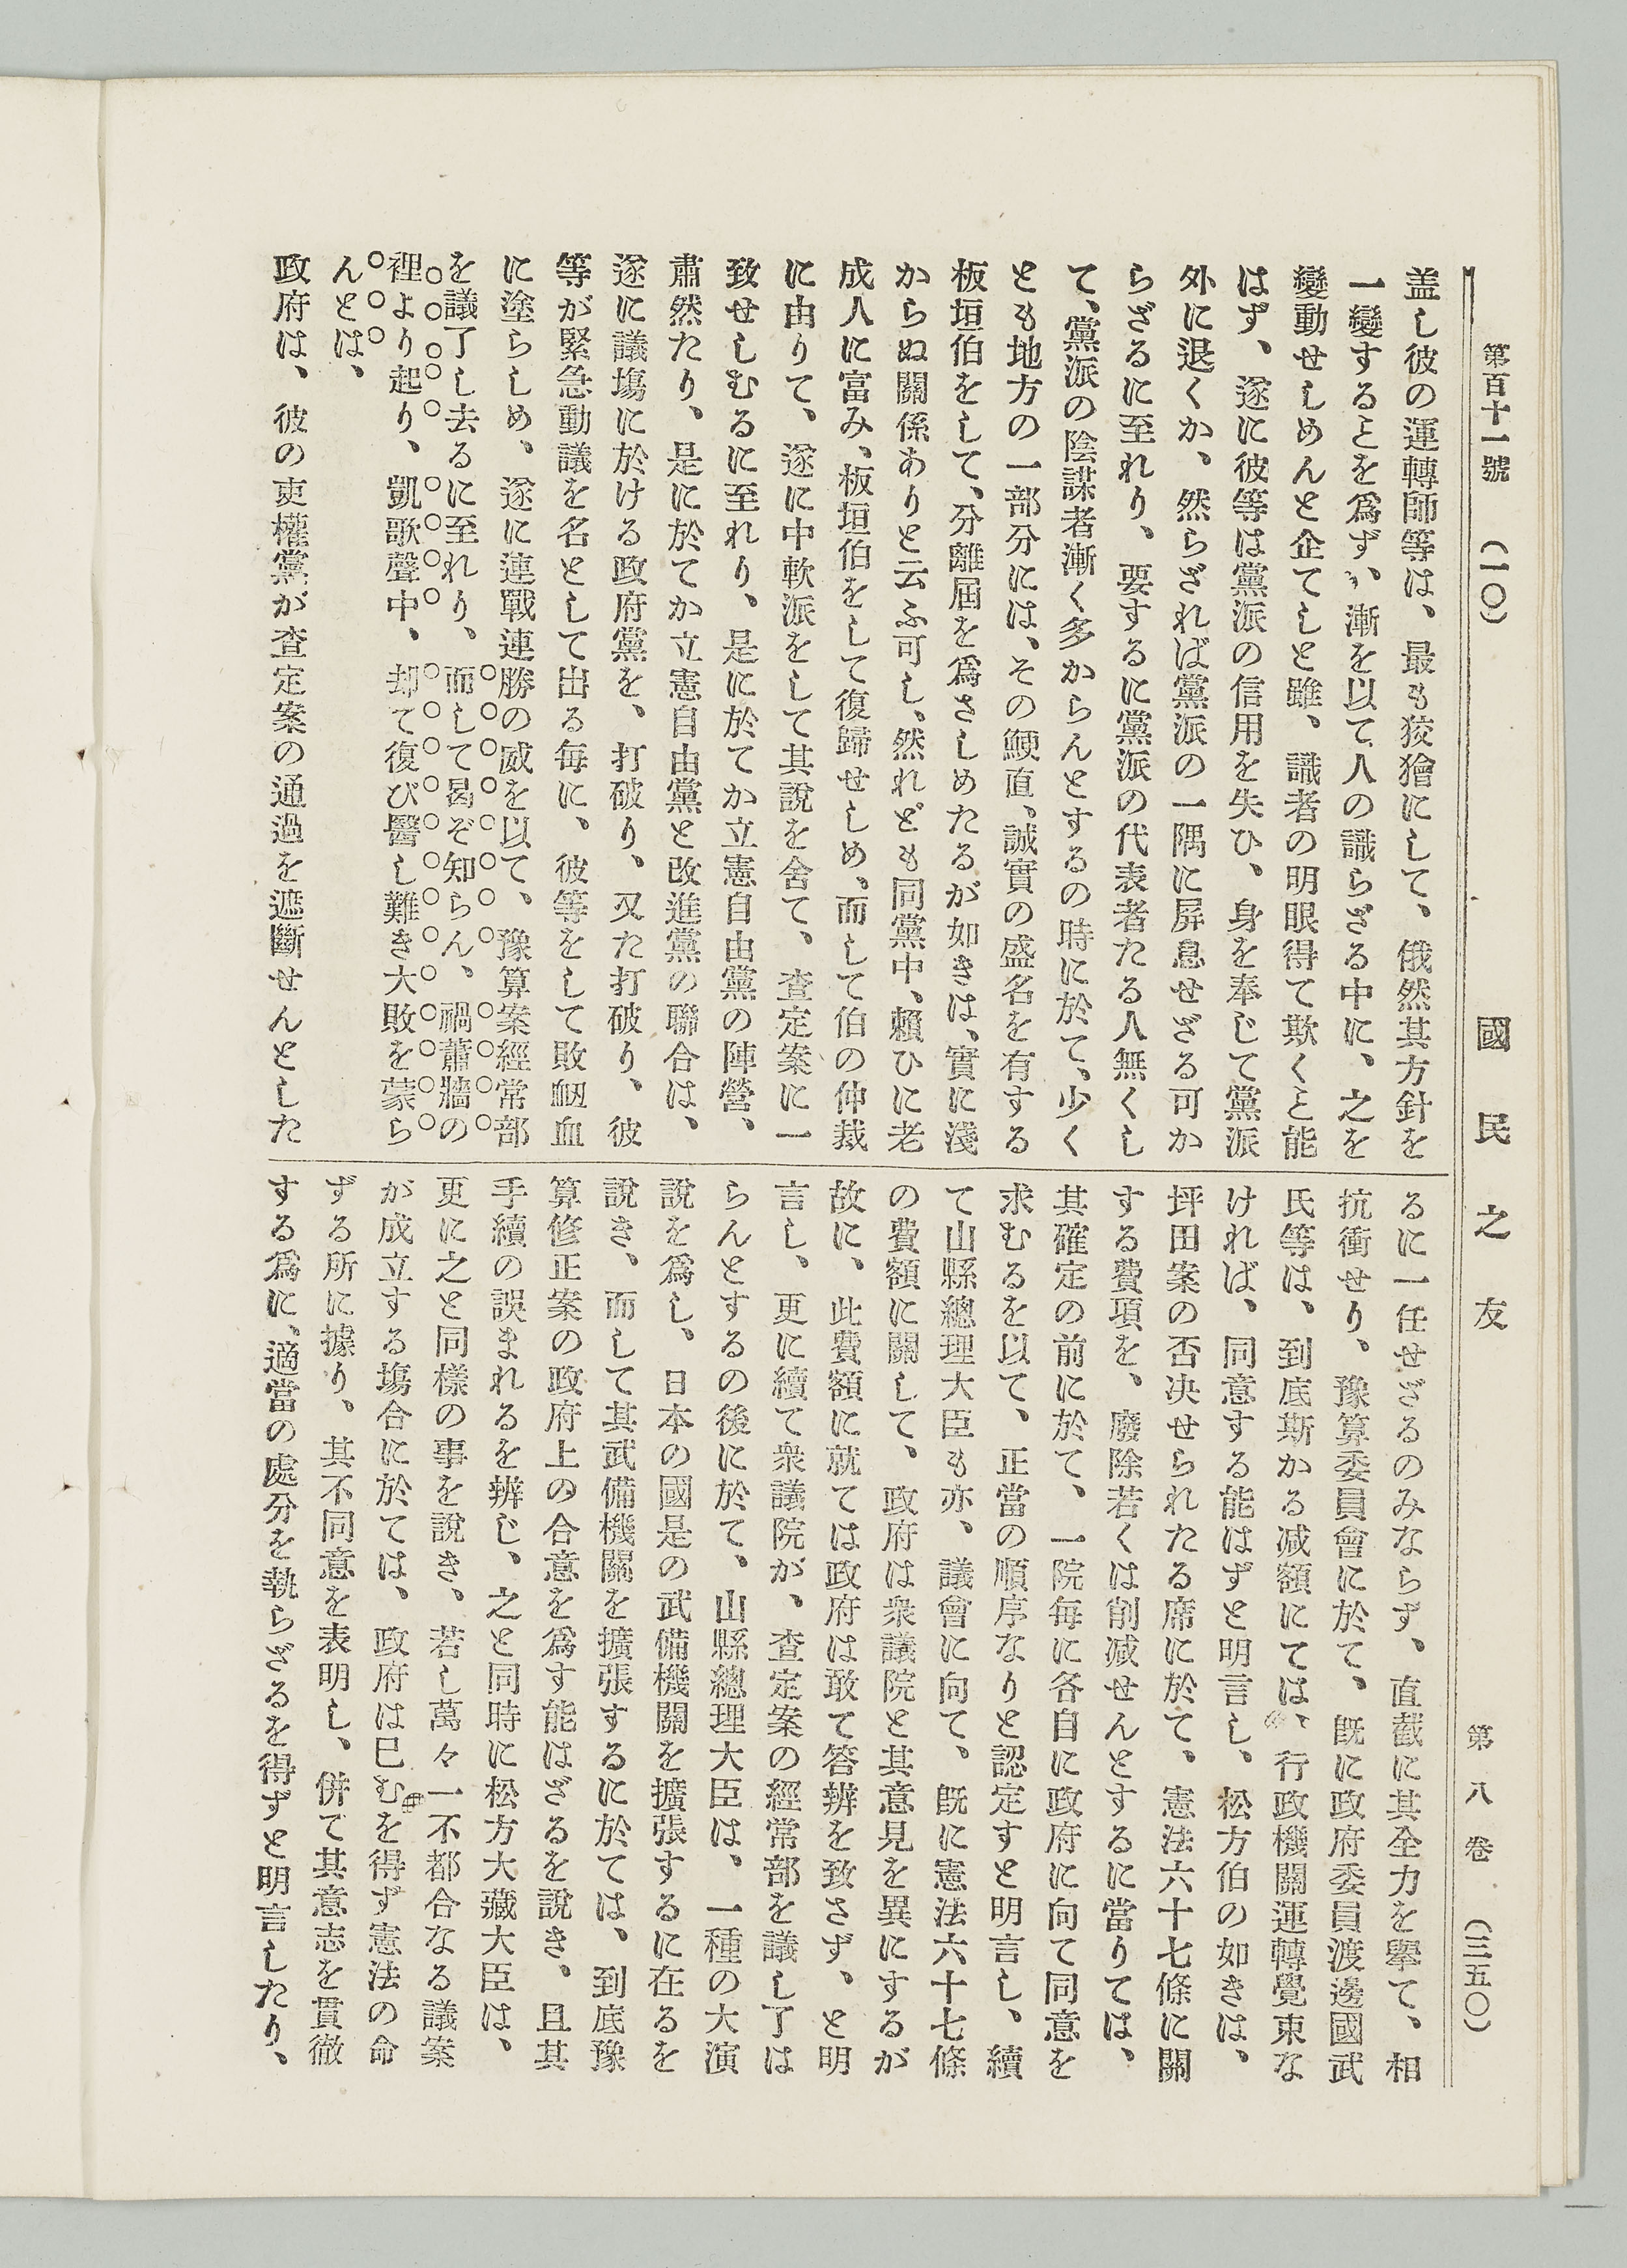 第百十一號 (一〇) 國民之友 第八卷 (三五〇)
盖し彼の運轉師等は、最も狡獪にして、俄然其方針を
一變するとを爲ず、漸を以て人の識らざる中に、之を
變動せしめんと企てしと雖、識者の明眼得て欺くと能
はず、遂に彼等は黨派の信用を失ひ、身を奉じて黨派
外に退くか、然らざれば黨派の一隅に屛息せざる可か
らざるに至れり、要するに黨派の代表者たる人無くし
て、黨派の陰謀者漸く多からんとするの時に於て、少く
とも地方の一部分には、その鯁直、誠實の盛名を有する
板垣伯をして、分離屆を爲さしめたるが如きは、實に淺
からぬ關係ありと云ふ可し、然れども同黨中、賴ひに老
成人に富み、板垣伯をして復歸せしめ、而して伯の仲裁
に由りて、遂に中軟派をして其說を舍て、査定案に一
致せしむるに至れり、是に於てか立憲自由黨の陣營、
肅然たり、是に於てか立憲自由黨と改進黨の聯合は、
遂に議塲に於ける政府黨を、打破り、又た打破り、彼
等が緊急動議を名として出る毎に、彼等をして敗衂血
に塗らしめ、遂に連戰連勝の威を以て、豫算案經常部
を議了し去るに至れり、而して曷ぞ知らん、禍蕭牆の
裡より起り、凱歌聲中、却て復び醫し難き大敗を蒙ら
んとは、
政府は、彼の吏權黨が査定案の通過を遮斷せんとした
るに一任せざるのみならず、直截に其全力を擧て、相
抗衝せり、豫算委員會に於て、既に政府委員渡邊國武
氏等は、到底斯かる减額にては、行政機關運轉覺束な
ければ、同意する能はずと明言し、松方伯の如きは、
坪田案の否决せられたる席に於て、憲法六十七條に關
する費項を、廢除若くは削减せんとするに當りては、
其確定の前に於て、一院毎に各自に政府に向て同意を
求むるを以て、正當の順序なりと認定すと明言し、續
て山縣總理大臣も亦、議會に向て、既に憲法六十七條
の費額に關して、政府は衆議院と其意見を異にするが
故に、此費額に就ては政府は敢て答辨を致さず、と明
言し、更に續て衆議院が、査定案の經常部を議し了は
らんとするの後に於て、山縣總理大臣は、一種の大演
說を爲し、日本の國是の武備機關を擴張するに在るを
說き、而して其武備機關を擴張するに於ては、到底豫
算修正案の政府上の合意を爲す能はざるを說き、且其
手續の誤まれるを辨じ、之と同時に松方大藏大臣は、
更に之と同樣の事を說き、若し萬々一不都合なる議案
が成立する塲合に於ては、政府は已むを得ず憲法の命
ずる所に據り、其不同意を表明し、併て其意志を貫徹
する爲に、適當の處分を執らざるを得ずと明言したり、